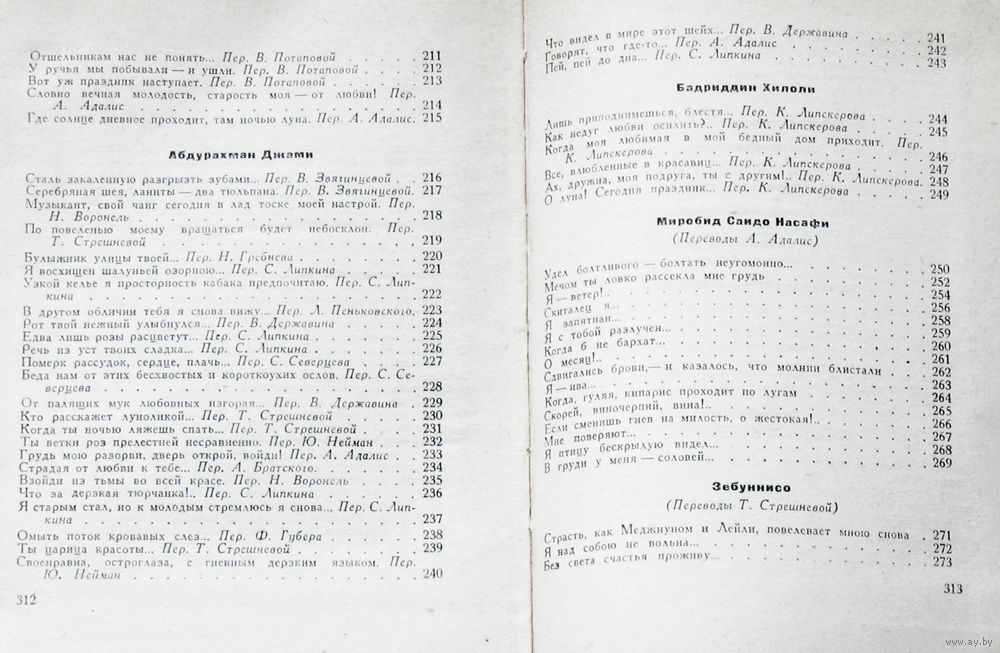 Отшельникам нас не понять... Пер. В. Потаповой . . . . 211
У ручья мы побывали — и ушли. Пер. В. Потаповой . . . . 212
Вот уж праздник наступает. Пер. В. Потаповой . . . . 213
Словно вечная молодость, старость моя — от любви! Пер.
А. Адалис . . . . . . . . . . . . . . 214
Где солнце дневное проходит, там ночью луна. Пер. А. Адалис. 215
Абдурахман Джами
Сталь закаленную разгрызть зубами... Пер. В. Звягинцевой . . 216
Серебряная шея, ланиты — два тюльпана. Пер. В. Звягинцевой. 217
Музыкант, свой чанг сегодня в лад тоске моей настрой. Пер.
Н. Воронель . . . . . . . . . . . . . . 218
По повеленью моему вращаться будет небосклон. Пер.
Т. Стрешневой . . . . . . . . . . . . . . 219
Булыжник улицы твоей... Пер. Н. Гребнева . . . . . . 220
Я восхищен шалуньей озорною... Пер. С. Липкина . . . . 221
Узкой келье я просторность кабака предпочитаю. Пер. С. Лип-
кина . . . . . . . . . . . . . . 222
В другом обличии тебя я снова вижу... Пер. Л. Пеньковского. 223
Рот твой нежный улыбнулся... Пер. В. Державина . . . . 224
Едва лишь розы расцветут... Пер. С. Липкина . . . . . 225
Речь из уст твоих сладка... Пер. С. Липкина . . . . . . 226
Померк рассудок, сердце, плачь... Пер. С. Северцева . . . . 227
Беда нам от этих бесхвостых и короткоухих ослов. Пер. С. Се-
верцева . . . . . . . . . . . . . . 228
От палящих мук любовных изгорая... Пер. В. Державина . . 229
Кто расскажет луноликой... Пер. Т. Стрешневой . . . . . 230
Когда ты ночью ляжешь спать... Пер. Т. Стрешневой . . . . 231
Ты ветки роз прелестней несравненно. Пер. Ю. Нейман . . . 232
Грудь мою разорви, дверь открой, войди! Пер. А. Адалис . . . 233
Страдая от любви к тебе... Пер. А. Братского. . . . . . 234
Взойди из тьмы во всей красе. Пер. Н. Воронель . . . . 235
Что за дерзкая тюрчанка!.. Пер. С. Липкина . . . . . . 236
Я старым стал, но к молодым стремлюсь я снова... Пер. С. Лип-
кина . . . . . . . . . . . . . . 237
Омыть поток кровавых слез... Пер. Ф. Губера . . . . . . 238
Ты царица красоты... Пер. Т. Стрешневой . . . . . . . 239
Своенравна, остроглаза, с гневным дерзким языком. Пер.
Ю. Нейман . . . . . . . . . . . . . . 240
312
Что видел в мире этот шейх... Пер. В. Державина . . . . 241
Говорят, что где-то... Пер. А. Адалис . . . . . . . 242
Пей, пей до дна... Пер. С. Липкина . . . . . . . . 243
Бадриддин Хилоли
Лишь приподнимешься, блестя... Пер. К. Липскерова . . . . 244
Как недуг любви осилить?.. Пер. К. Липскерова . . . . . 245
Когда моя любимая в мой бедный дом приходит. Пер.
К. Липскерова . . . . . . . . . . . . . . 246
Все, влюбленные в красавиц... Пер. К. Липскерова . . . . 247
Ах, дружна, моя подруга, ты с другим!.. Пер. К. Липскерова. 248
О луна! Сегодня праздник... Пер. К. Липскерова . . . . . 249
Миробид Саидо Насафи
(Переводы А. Адалис)
Удел болтливого — болтать неугомонно... . . . . . . . 250
Мечом ты ловко рассекла мне грудь . . . . . . . . 252
Я — ветер!.. . . . . . . . . . . . . . 254
Скиталец я... . . . . . . . . . . . . . 256
Я запятнан... . . . . . . . . . . . . . 258
Я с тобой разлучен... . . . . . . . . . . . 259
Когда б не бархат... . . . . . . . . . . . 260
О месяц!.. . . . . . . . . . . . . . 261
Сдвигались брови,— и казалось, что молнии блистали . . . 262
Я — ива... . . . . . . . . . . . . . . 263
Когда, гуляя, кипарис проходит по лугам . . . . . . 264
Скорей, виночерпий, вина!.. . . . . . . . . . 265
Если сменишь гнев на милость, о жестокая!.. . . . . . 266
Мне поверяют... . . . . . . . . . . . . 267
Я птицу бескрылую видел... . . . . . . . . . 268
В груди у меня — соловей... . . . . . . . . . 269
Зебуннисо
(Переводы Т. Стрешневой)
Страсть, как Меджнуном и Лейли, повелевает мною снова . 271
Я над собою не вольна... . . . . . . . . . . 272
Без света счастья проживу... . . . . . . . . . 273
313
www.ay.by